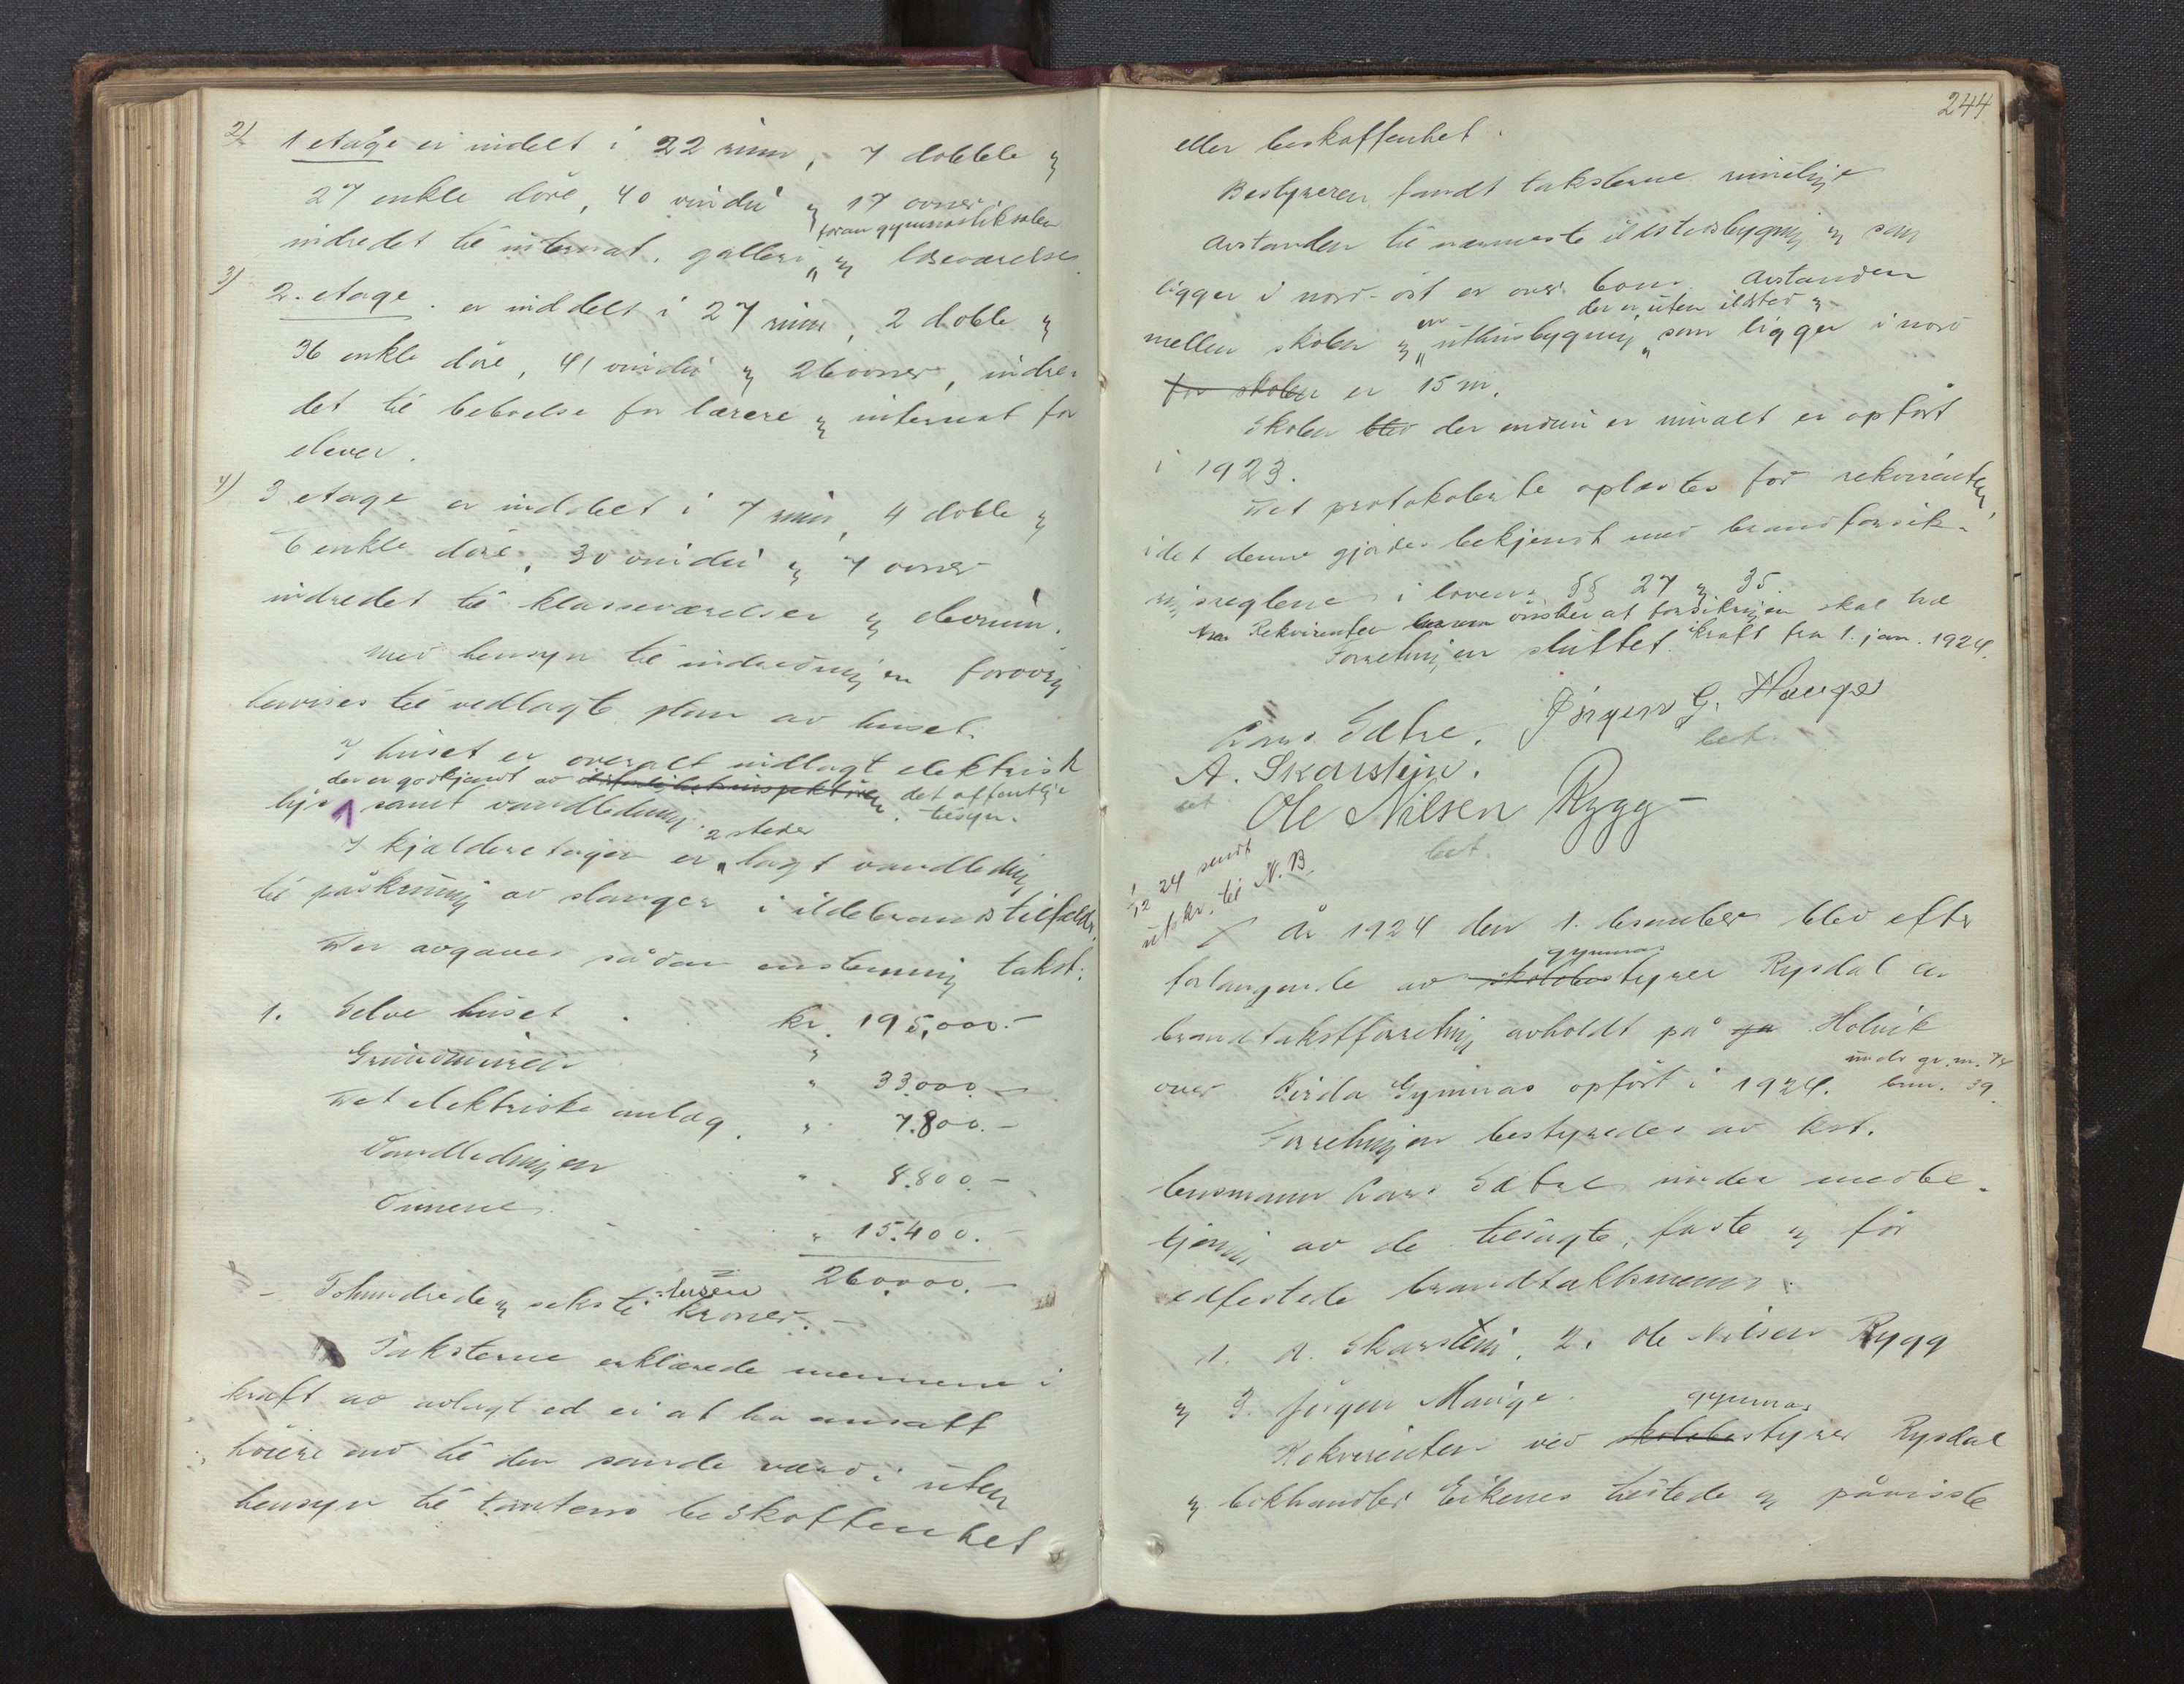 2) 1 etage er indelt i 22 rum, 7 dobble og
27 enkle döre, 40 vindu og 17 ovner
indredet til internat, galleri foran gymnastiksalen og læseværelse.
3) 2. etage. er inddelt i 27 rum, 2 doble og
36 enkle döre, 41 vindu og 26 ovner, indre-
det til beboelse for lærere og internat for
elever.
4) 3 etage er inddelt i 7 rum, 4 doble og
6 enkle döre, 30 vindu og 7 ovner
indredet til klasseværelser og elevrum.
Med hensyn til indredningen forövrig
henvises til vedlagte plan av huset.
I huset er overalt indlagt elektrisk
der er godkjendt av det offentlige tilsyn.
lys samt vandledning.
I kjelderetagen er 2 steder lagt vandledning
til påskruning av slanger i ildebrandstilfælde.
Der avgaves sådan enstemmig takst:
1. Selve huset . . kr. 195,000.-
Grundmuren . " 33.000.-
Det elektriske anlæg . " 7.800.-
Vandledningen . . " 8.800.-
Ovnene . . . " 15.400.-
260000.-
- Tohundrede og seksti tusen kroner. -
Taksterne erklærede mennene i
kraft av avlagt ed ei at ha ansatt
höiere end til den sande værdi uten
hensyn til tomtens beskaffenhet
244
eller beskaffenhet.
Bestyreren fandt taksterne rimelige
Avstanden til nærmeste ildstedsbygning og som
ligger i nord-öst er over 60 m. Avstanden
mellem skolen og en uthusbygning der er uten ildsted og som ligger i nord
for skolen er 15 m.
Skolen blev der endnu er umalt er opfört
i 1923.
Det protokolerte oplæstes for rekvirenten,
idet denne gjordes bekjendt med brandforsik-
ringsreglene i lovens §§ 27 og 35.
Rekvirenten önsker at forsikringen skal træ
i kraft fra 1. jan. 1924.
Forretningen sluttet.
Lars Sætre. Jörgen G. Hauge
bet.
A. Skarstein.
bet
Ole Nilsen Rygg -
bet.
1/12 24 sendt
utskr. til N. B.
År 1924 den 1. desember blev efter
forlangende av skolebestyrer gymnas Rysdal en
brandtakstforretning avholdt på Holvik
under gr. n. 74
over Firda Gymnas opfört i 1924. brn. 39.
Forretningen bestyredes av kst.
lensmann Lars Sætre under medbe-
tjening av de tilsagte, faste og för
edfestede brandtakstmenn:
1. A. Skarstein, 2. Ole Nilsen Rygg
og 3. Jörgen Hauge.
Rekvirenten ved skolebestyrer gymnas Rysdal
og bokhandler Eikenes tilstede og påviste